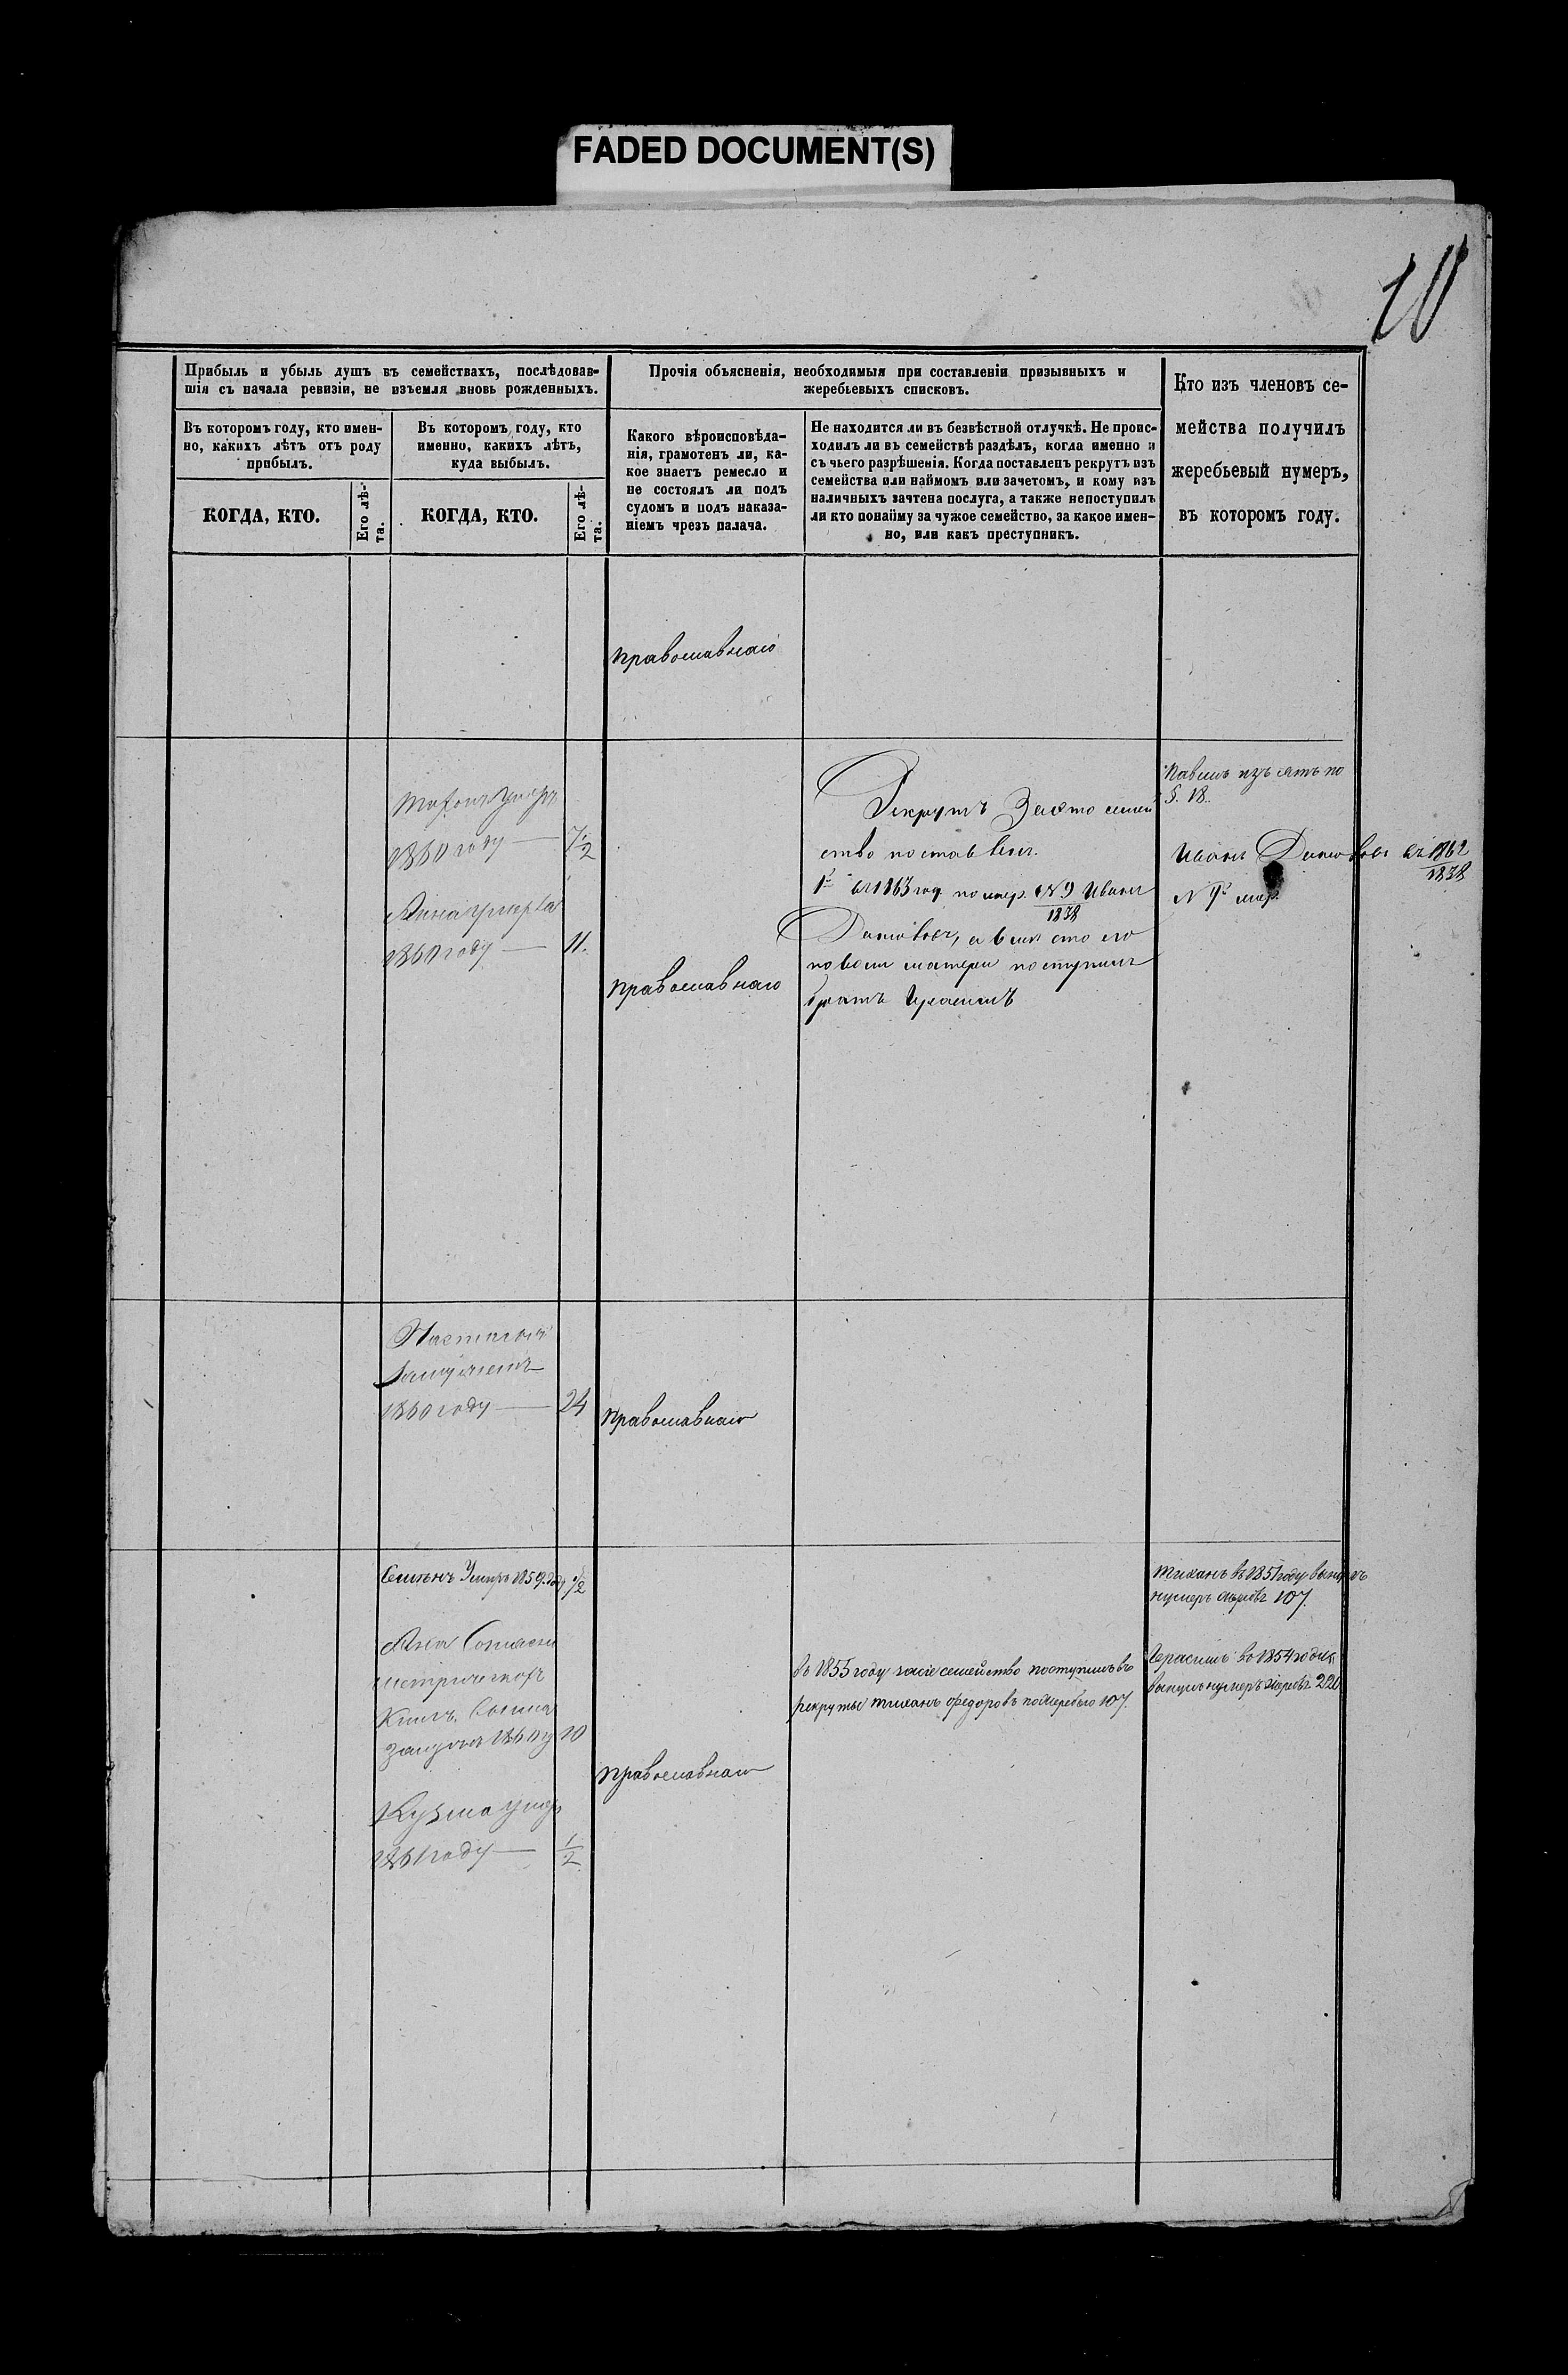 FADED DOCUMENT(S)
10
Прибыль и убыль душъ въ семействахъ, послѣдовав-
шія съ начала ревизіи, не изъемля вновь рожденныхъ.
Въ которомъ году, кто имен-
но, какихъ лѣтъ отъ роду
прибылъ.
КОГДА, КТО.
Его лѣ-
та.
Въ которомъ году, кто
именно, какихъ лѣтъ,
куда выбылъ.
КОГДА, КТО.
Его лѣ-
та.
Прочія объясненія, необходимыя при составленіи призывныхъ и
жеребьевыхъ списковъ.
Какого вѣроисповѣда-
нія, грамотенъ ли, ка-
кое знаетъ ремесло и
не состоялъ ли подъ
судомъ и подъ наказа-
ніемъ чрезъ палача.
Не находится ли въ безвѣстной отлучкѣ. Не проис-
ходилъ ли въ семействѣ раздѣлъ, когда именно и
съ чьего разрѣшенія. Когда поставленъ рекрутъ изъ
семейства или наймомъ или зачетомъ, и кому изъ
наличныхъ зачтена послуга, а также непоступилъ
ли кто понайму за чужое семейство, за какое имен-
но, или какъ преступникъ.
Кто изъ членовъ се-
мейства получилъ
жеребьевый нумеръ,
въ которомъ году.
православнаго
1860 году — 7 1/2
Анна умерла
1860 году — 11.
православнаго
Рекрутъ За это семей
ство поставленъ.
въ 1863 год. по жер. № 9 Иванъ
1838
поступилъ
братъ Герасимъ
Павелъ изъятъ по
§. 18.
Иванъ въ 1862
1838
№ 9й жер.
Настасья
Замужемъ
1860 году — 24
православнаго
Семенъ Умеръ 1859. году 1/2
Анна
замужъ 1860 г 20
Кузма умеръ
1861 году — 1/2
православнаго
въ 1855 году засіе семейство поступилъ въ
рекруты тиханъ федоровъ пожеребью 107.
тиханъ въ 1851 году вынулъ
нумеръ жеребья 107.
Герасимъ во 1854 году
вынулъ нумеръ жеребья 220